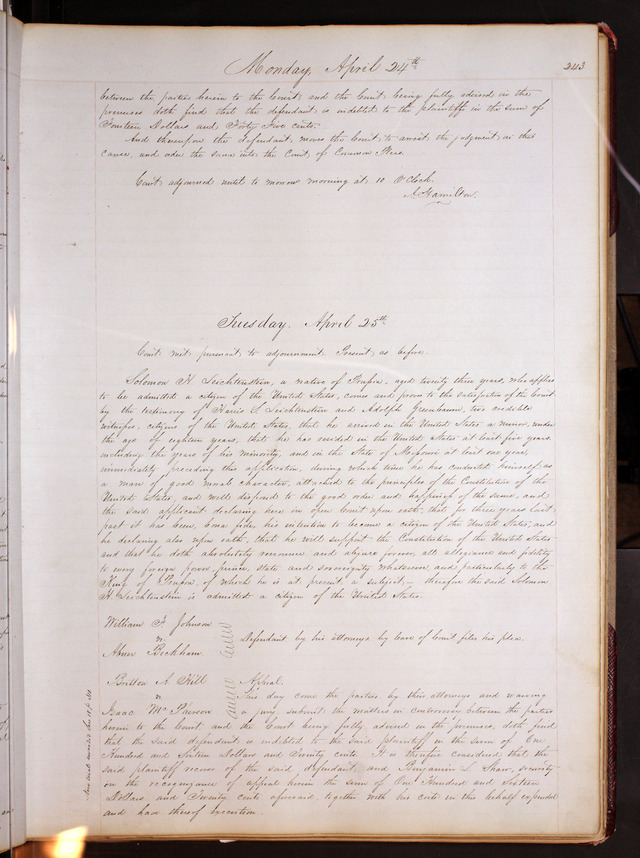 Monday, April 24th
243
between the parties herein to the Court and the Court being fully advised in the
premises doth find that the defendant is indebted to the plaintiff in the sum of
Fourteen Dollars and Forty Five cents.
And thereupon the Defendant, moves the Court, to arrest the judgment, in this
cause, and the same into the Court, of Common Pleas.
Court adjourned until to morrow morning at 10 O'Clock.
A Hamilton.
Tuesday, April 25th
Court met, pursuant, to adjournment. Present, as before.
Solomon H. Leichtenstein, a native of Prussia, aged twenty three years, who applies
to be admitted a citizen of the United States, comes and proves to the satisfaction of the Court
by the testimony of Harris L. Leichtenstein and Adolph Greenbaum, two credible
witnesses, citizens of the United States, that he arrived in the United States a minor under
the age of eighteen years, that he has resided in the United States at least five years
including the years of his minority, and in the State of Missouri at least one year,
immediately preceding this application, during which time he has conducted himself as
a man of good moral character, attached to the principles of the Constitution of the
United States, and well disposed to the good order and happiness of the same, and
the said applicant declaring here in open Court upon oath, that for three years last
past it has been, bona fide, his intention to become a citizen of the United States, and
he declaring also upon oath, that he will support the Constitution of the United States
and that he doth absolutely renounce and abjure forever, all allegiance and fidelity
to every foreign power, prince, state and sovereignty whatsoever, and particularly to the
King of Prussia, of which he is at present a subject, – therefore the said Solomon
H. Leichtenstein is admitted a citizen of the United States.
William F. Johnson
vs.
Abner Beckham
Defendant by his attorneys by leave of Court files his plea.
Britton A. Hill
vs
Isaac McPherson
Appeal.
This day come the parties by their attorneys and waiving
a jury submit the matters in controversy between the parties
herein to the Court and the Court being fully advised in the premises, doth find
that the said defendant is indebted to the said plaintiff in the sum of One
Hundred and Sixteen Dollars and Twenty cents. It is therefore considered that the
said plaintiff recover of the said defendant and Benjamin L. Shaw, security
on the recognizance of appeal herein the sum of One Hundred and Sixteen
Dollars and Twenty cents aforesaid, together with his costs in this behalf expended
and have thereof execution.